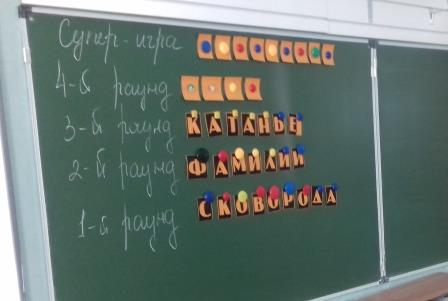 Супер-игра
4-й раунд
3-й раунд КАТАНЬЕ
2-й раунд ФАМИЛИИ
1-й раунд СКОВОРОДА